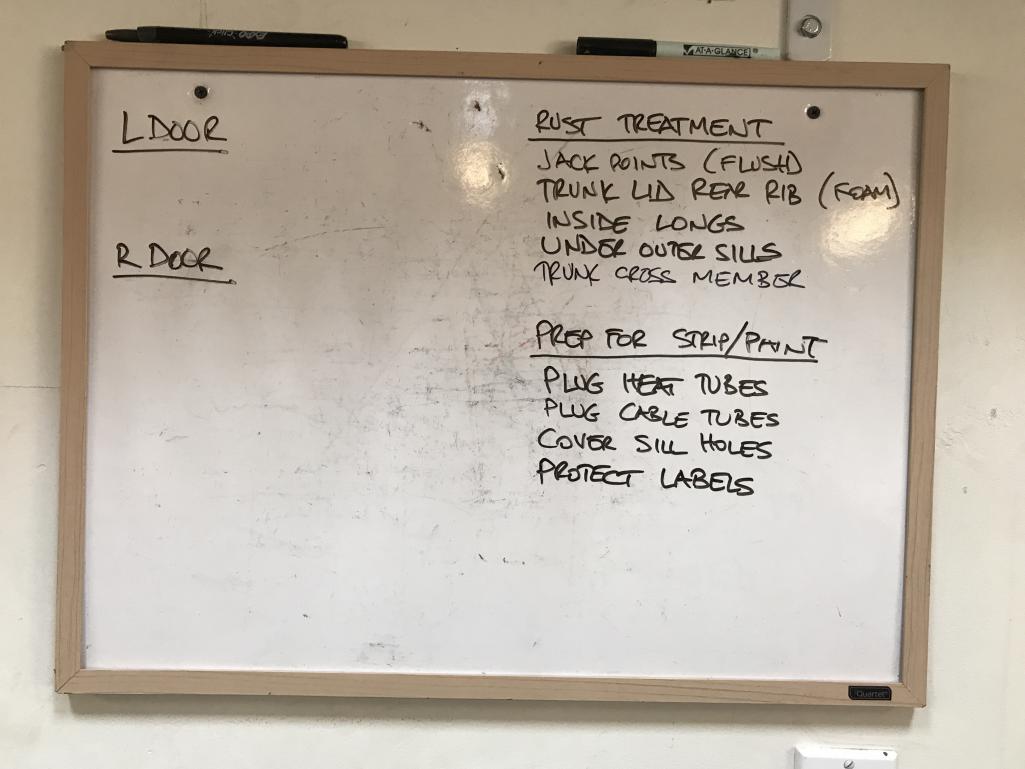 AT-A-GLANCE®
L DOOR
R DOOR
RUST TREATMENT
JACK POINTS (FLUSH)
TRUNK LID REAR RIB (FOAM)
INSIDE LONGS
UNDER OUTER SILLS
TRUNK CROSS MEMBER
PREP FOR STRIP/PAINT
PLUG HEAT TUBES
PLUG CABLE TUBES
COVER SILL HOLES
PROTECT LABELS
Quartet